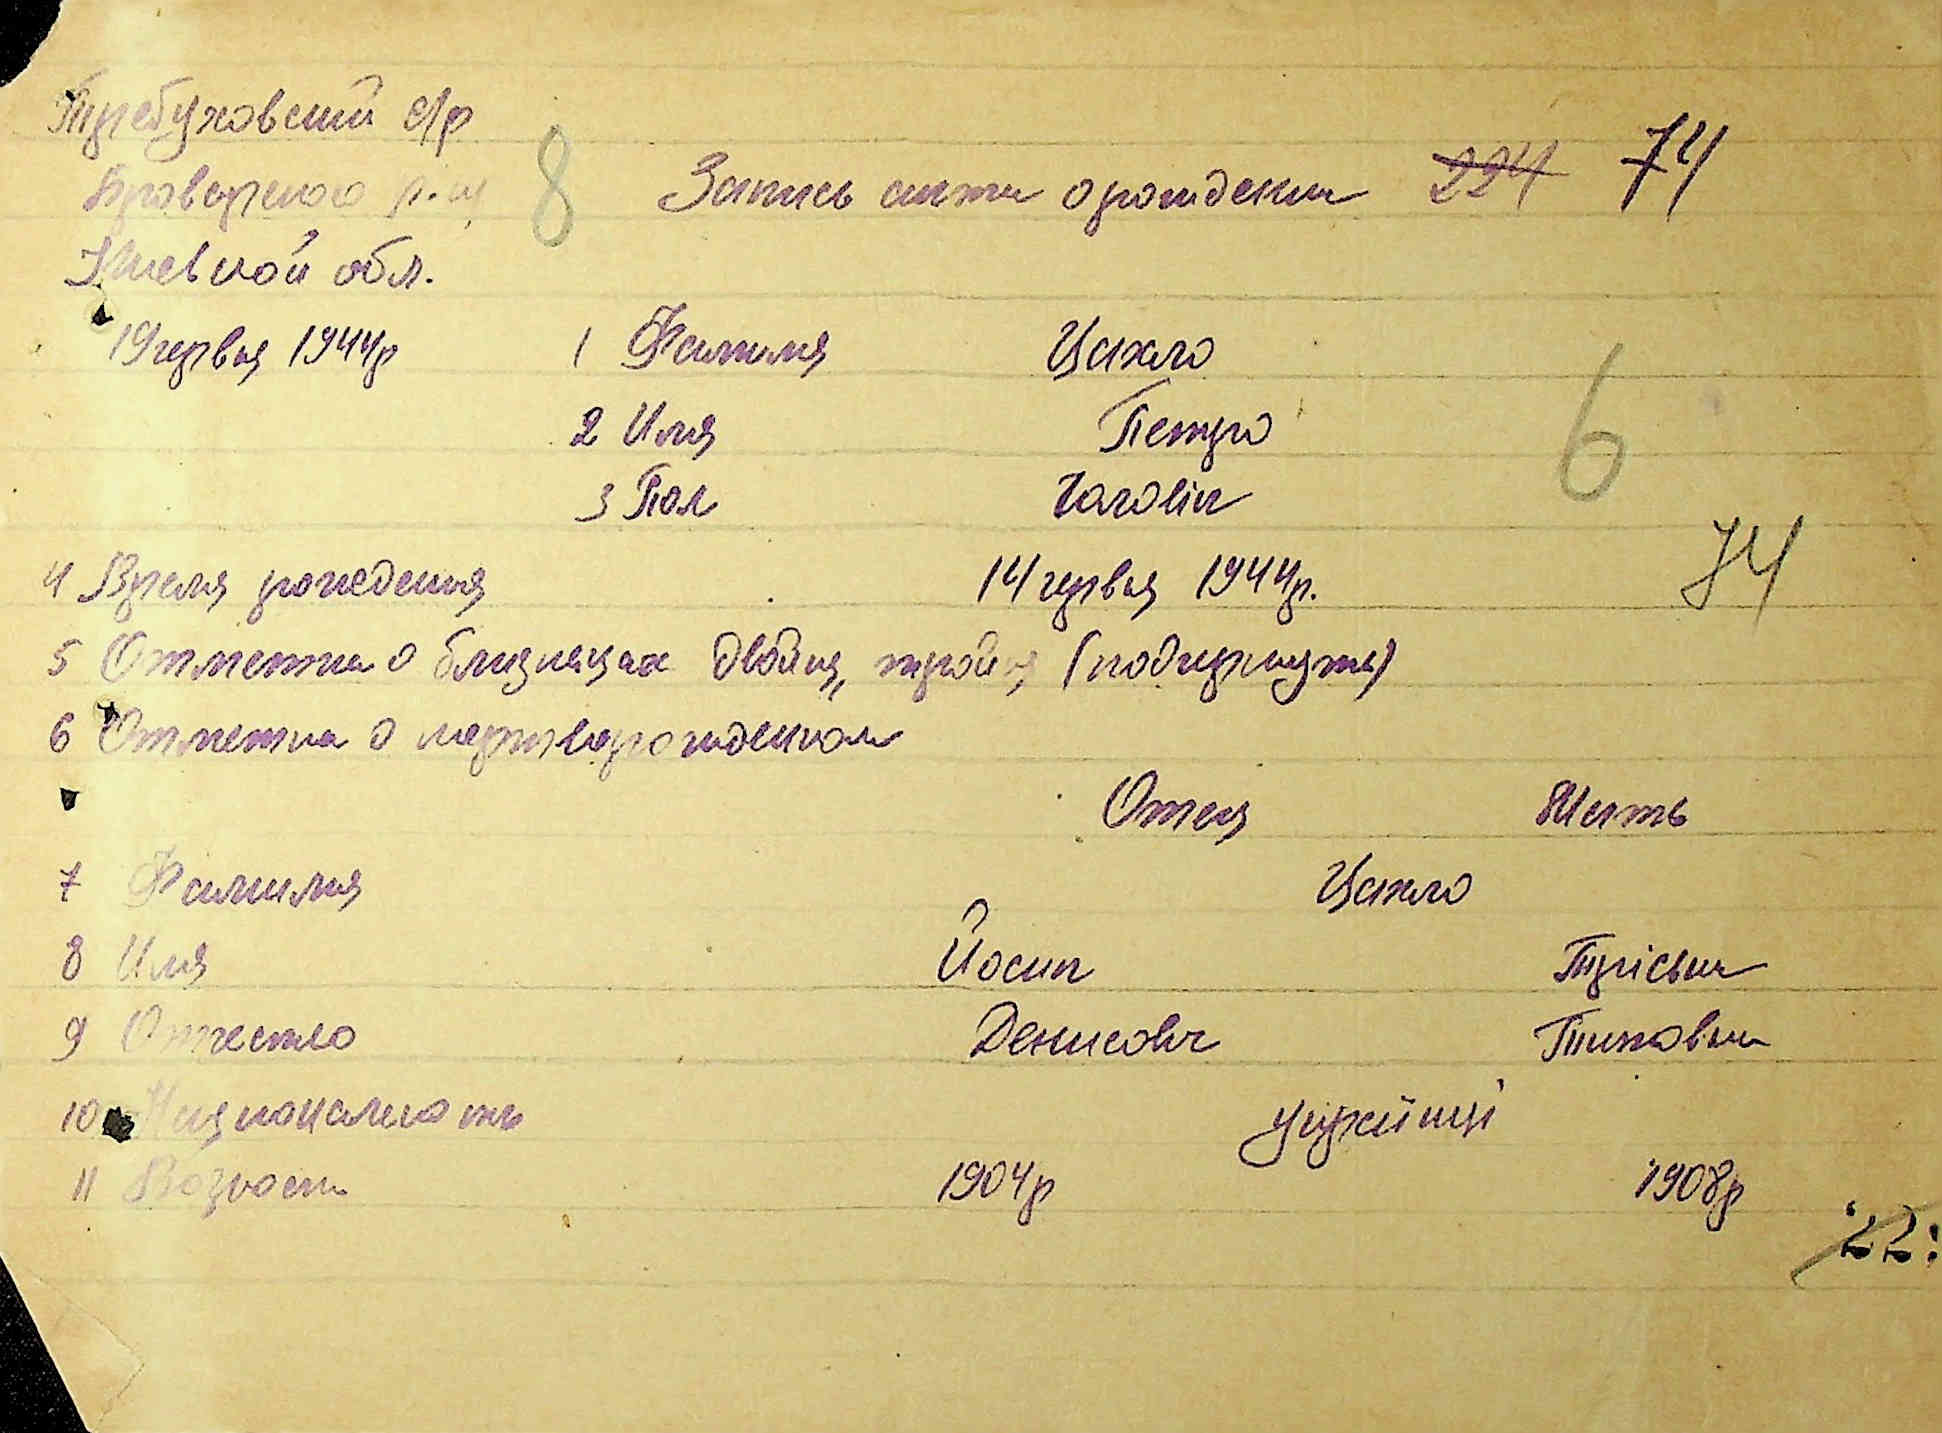 Требуховский с/р
Броварского р-ну 8 Запись акта о рождении 224 74
Киевской обл.
19 червня 1944р 1 Фамилия Цахло
2 Имя Петро 6
3 Пол Чоловіч
4 Время рождения 14 червня 1944р. 74
5 Отметка о близнецах двойня, тройня (подчеркнуть)
6 Отметка о мертворожденном
Отец Мать
7 Фамилия Цахло
8 Имя Йосип
9 Отчество Денисович
10 Национальность українці
11 Возраст 1904р 1908р
22: